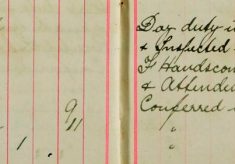 9
11
1
Day duty i
& Inspected
F Handscom
& Attendin
Conferred
"
"